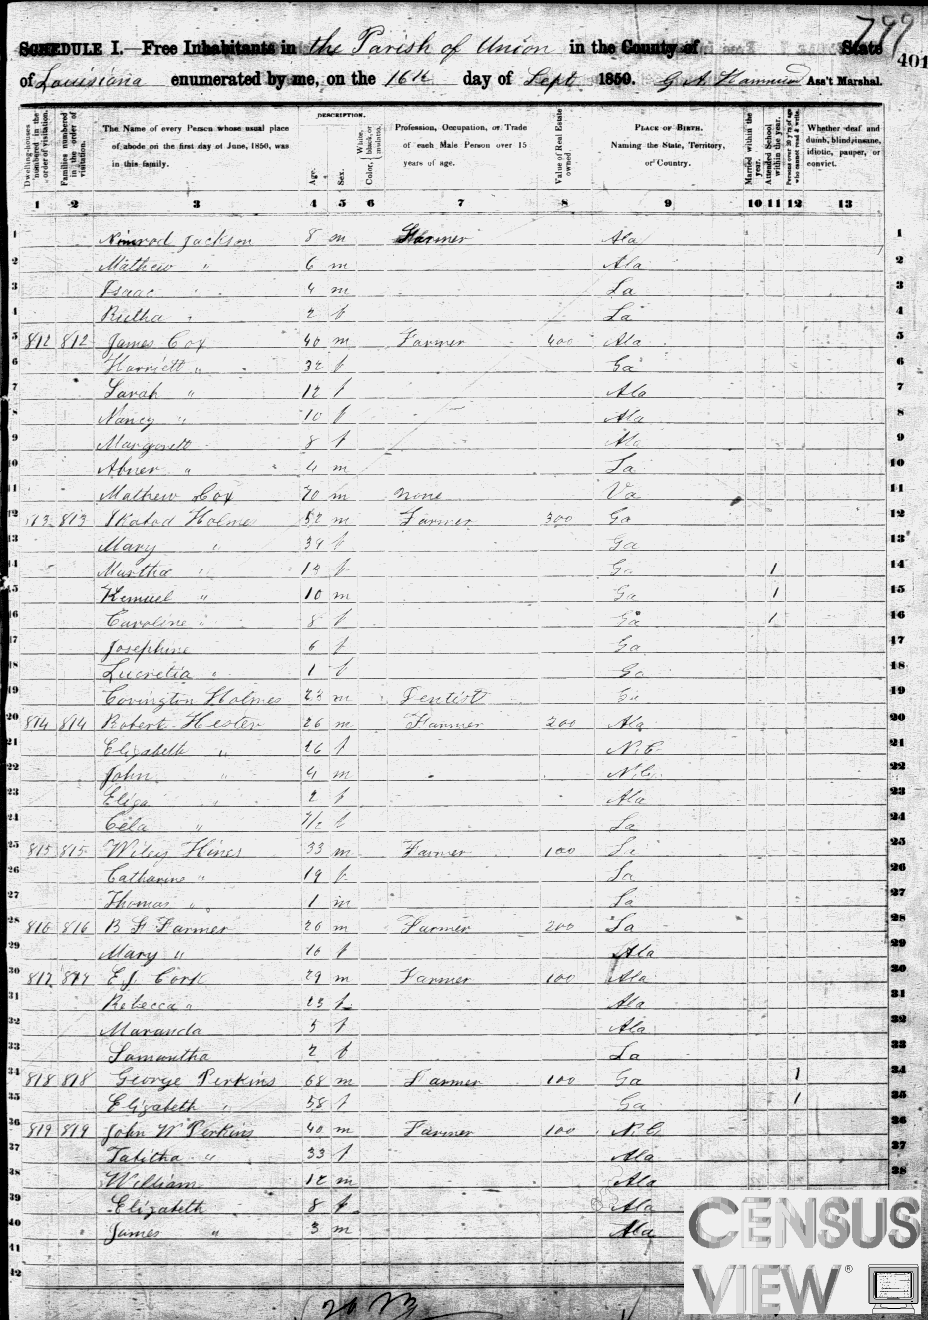 799
SCHEDULE I.—Free Inhabitants in the Parish of Union in the County of State
401
of Louisiana enumerated by me, on the 16th day of Sept 1850. G A Ass't Marshal.
Dwelling-houses numbered in the order of visitation.
Families numbered in the order of visitation.
The Name of every Person whose usual place of abode on the first day of June, 1850, was in this family.
DESCRIPTION.
Age.
Sex.
Color, White, black, or mulatto.
Profession, Occupation, or Trade of each Male Person over 15 years of age.
Value of Real Estate owned.
PLACE OF BIRTH. Naming the State, Territory, or Country.
Married within the year.
Attended School within the year.
Persons over 20 y'rs of age who cannot read & write.
Whether deaf and dumb, blind, insane, idiotic, pauper, or convict.
1 2 3 4 5 6 7 8 9 10 11 12 13
1 Nimrod Jackson 8 m Farmer Ala 1
2 Mathew " 6 m Ala 2
3 Isaac " 4 m La 3
4 " 2 f La 4
5 812 812 James Cox 40 m Farmer 400 Ala 5
6 Harriett " 32 f Ga 6
7 Sarah " 12 f Ala 7
8 Nancy " 10 f Ala 8
9 Margarett 8 f Ala 9
10 Abner " 4 m La 10
11 Mathew Cox 70 m None Va 11
12 813 813 Holmes 52 m Farmer 300 Ga 12
13 Mary " 39 f Ga 13
14 Martha " f Ga 1 14
15 " 10 m Ga 1 15
16 Caroline " 8 f Ga 1 16
17 Josephine 6 f Ga 17
18 Lucretia " 1 f Ga 18
19 Covington Holmes 23 m Dentist Ga 19
20 814 814 Robert Hester 26 m Farmer 200 Ala 20
21 Elizabeth " 26 f N.C. 21
22 John " 4 m N.C. 22
23 Eliza " 2 f Ala 23
24 Cela " f La 24
25 815 815 Wiley Hines 33 m Farmer 100 La 25
26 Catharine " 19 f La 26
27 Thomas " 1 m La 27
28 816 816 B F Farmer 26 m Farmer 200 La 28
29 Mary " 16 f Ala 29
30 817 817 E.J. 29 m Farmer 100 Ala 30
31 Rebecca " 23 f Ala 31
32 Maranda 5 f Ala 32
33 Samantha 2 f La 33
34 818 818 George Perkins 68 m Farmer 100 Ga 1 34
35 Elizabeth " 58 f Ga 1 35
36 819 819 John W Perkins 40 m Farmer 100 N.C. 36
37 Tabitha " 33 f Ala 37
38 William 12 m Ala 38
39 Elizabeth 8 f Ala
40 James " 3 m Ala
41
42
CENSUS
VIEW®